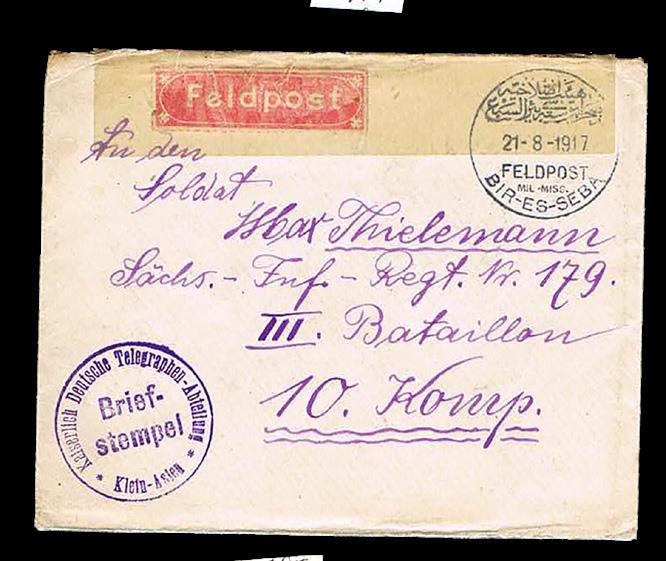 Feldpost
21-8-1917
FELDPOST
MIL-MISS.
BIR-ES-SEBA
An den
Soldat
Max Thielemann
Sächs.- Inf.- Regt. Nr. 179.
III. Bataillon
10. Komp.
Kaiserlich Deutsche Telegraphen-Abteilung
Brief-
stempel
* Klein-Asien *